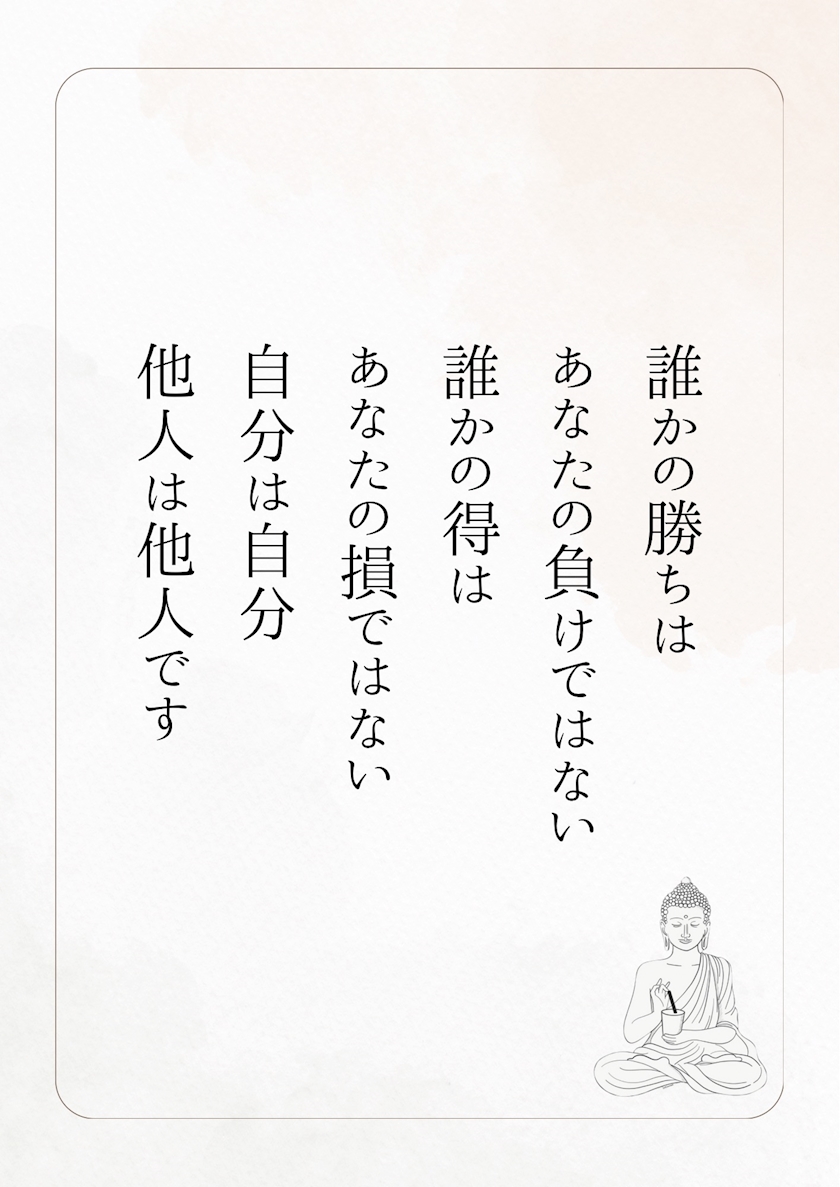 誰かの勝ちは
あなたの負けではない
誰かの得は
あなたの損ではない
自分は自分
他人は他人です